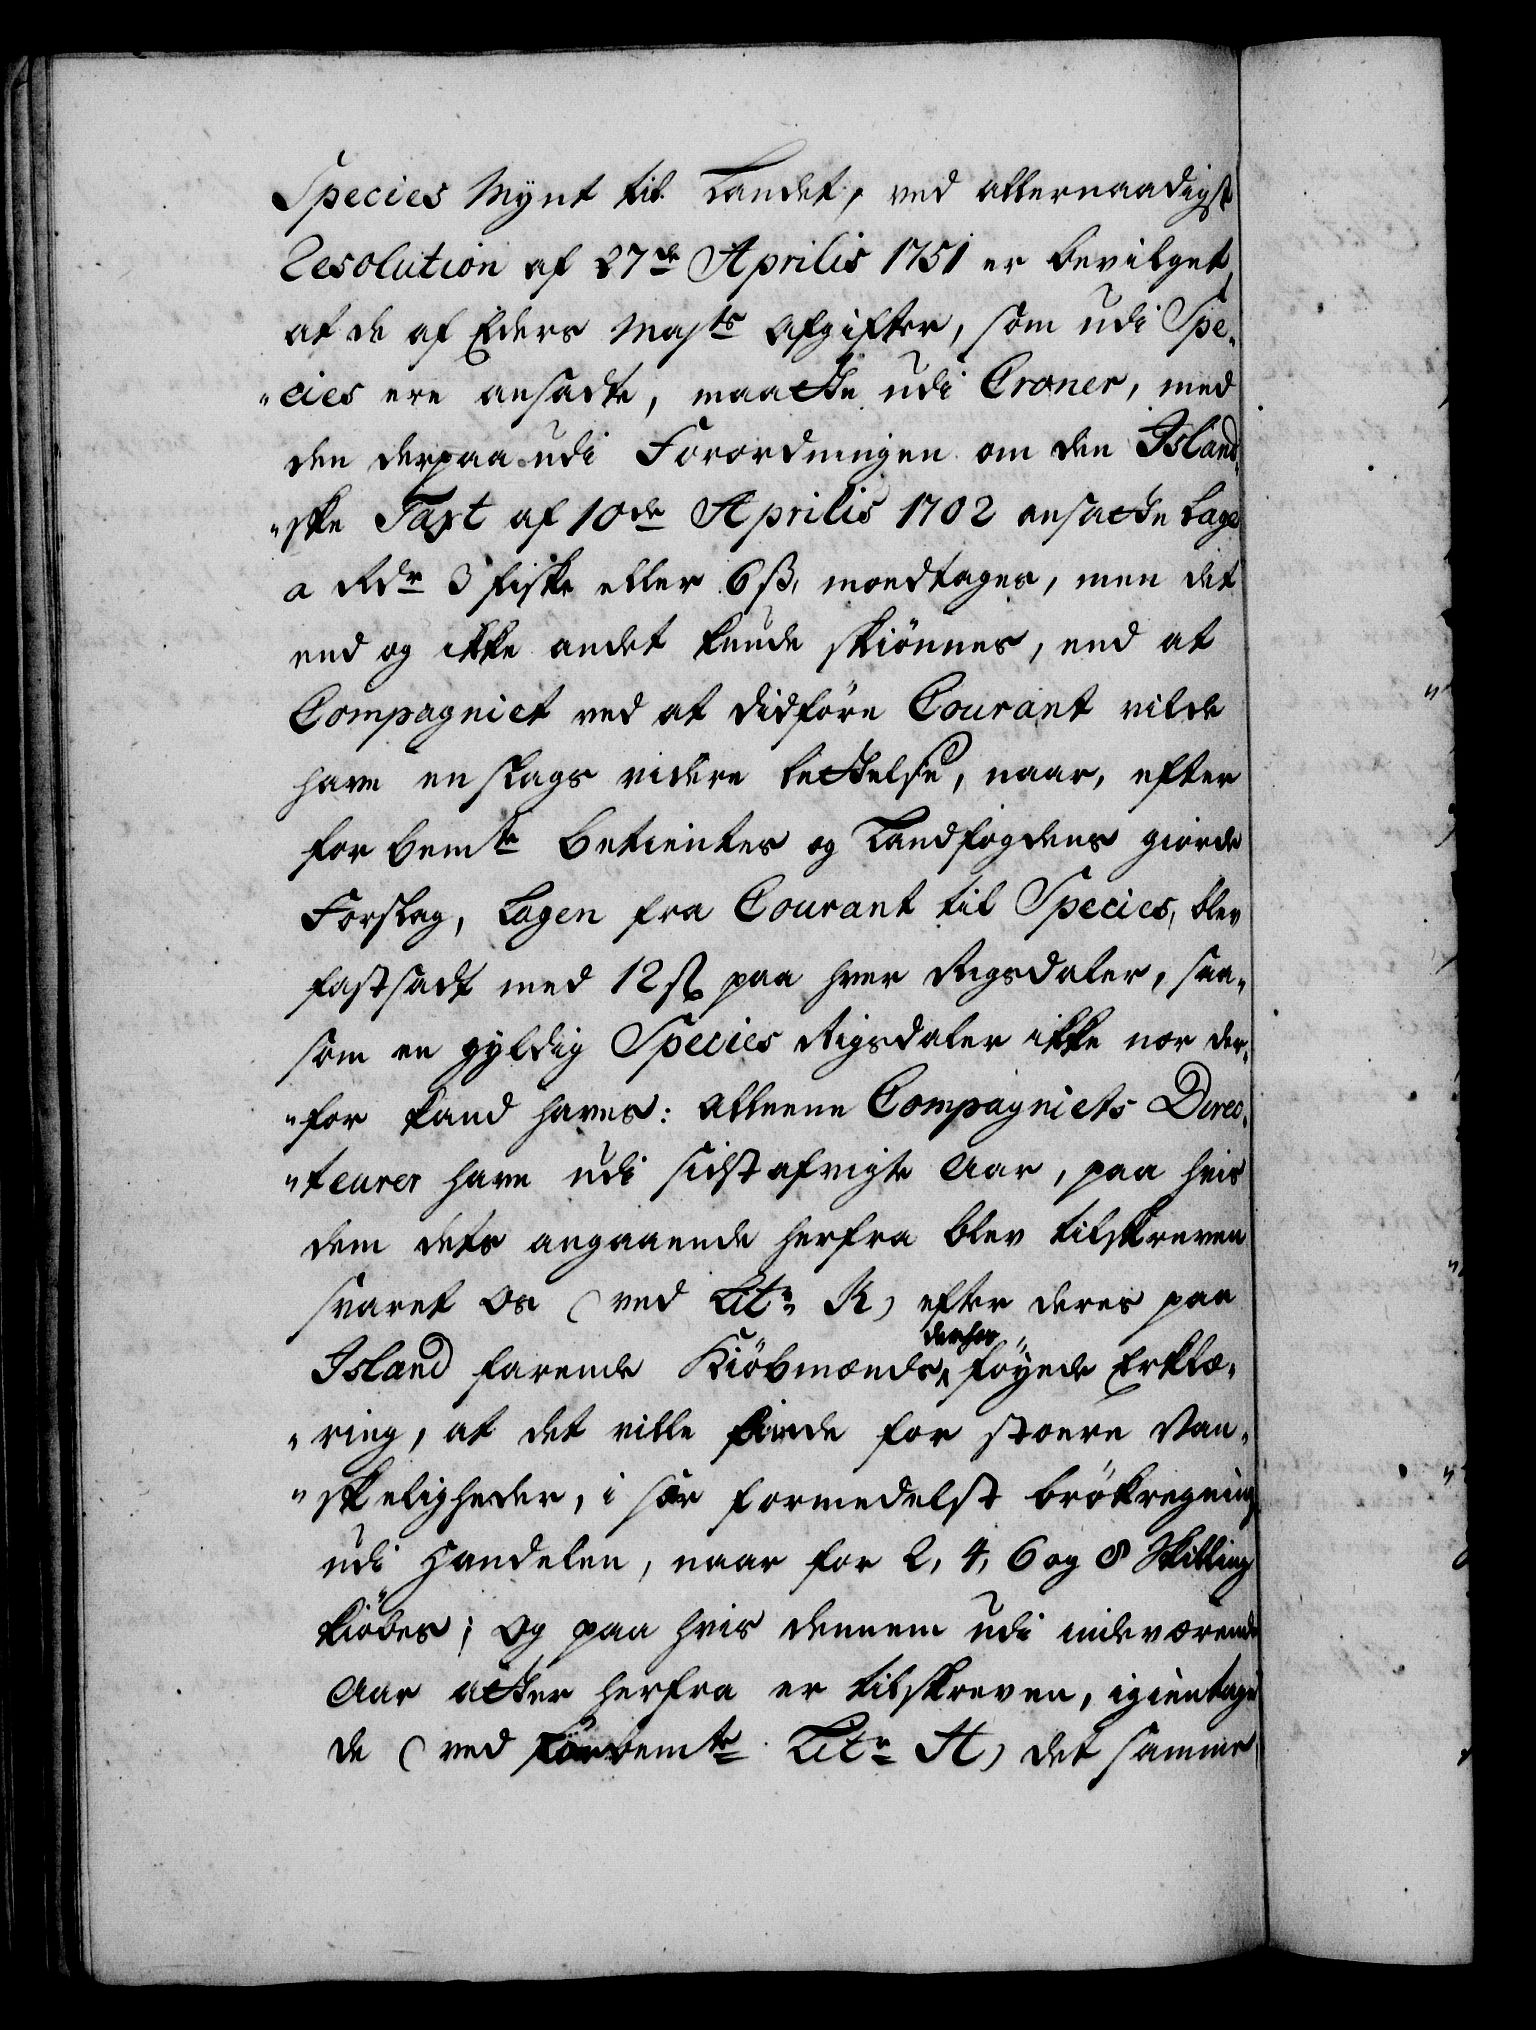 Species Mynt til Landet, ved allernaadigst
Resolution af 27de Aprilis 1751 er bevilget,
at de af Eders Majts Afgifter, som udi Spe„
„cies ere ansadte, maatte udi Croner, med
den derpaa udi Forordningen om den Island„
„ske Taxt af 10de Aprilis 1702 ansatte Lage
a Rdr 3 fiske eller 6 ß, modtages, men det
end og ikke andet kunde skiönnes, end at
Compagniet ved at didföre Courant vilde
have en slags videre lettelse, naar, efter
for bemte Betientes og Landfogdens giorde
Forslag, Lagen fra Courant til Species, blev
fastsadt med 12 ß paa hver Rigsdaler, saa„
som en gyldig Species Rigsdaler ikke nor der„
„for kand haves: Alleene Compagniets Direc„
„teurer have udi sidst afvigte Aar, paa hvis
dem dets angaaende herfra blev tilskreven
svaret os (ved Litr: K) efter deres paa
Island farende Kiöbmænds derhos föyede Erklæ„
„ring, at det ville finde for stoere Van„
„skeligheder, i sær formedelst brökregning
udi Handelen, naar for 2, 4, 6 og 8 Skilling
kiöbes; og paa hvis dennem udi indeværende
Aar atter herfra er tilskreven, igientage
de (ved forbemte Litr A) det samme,